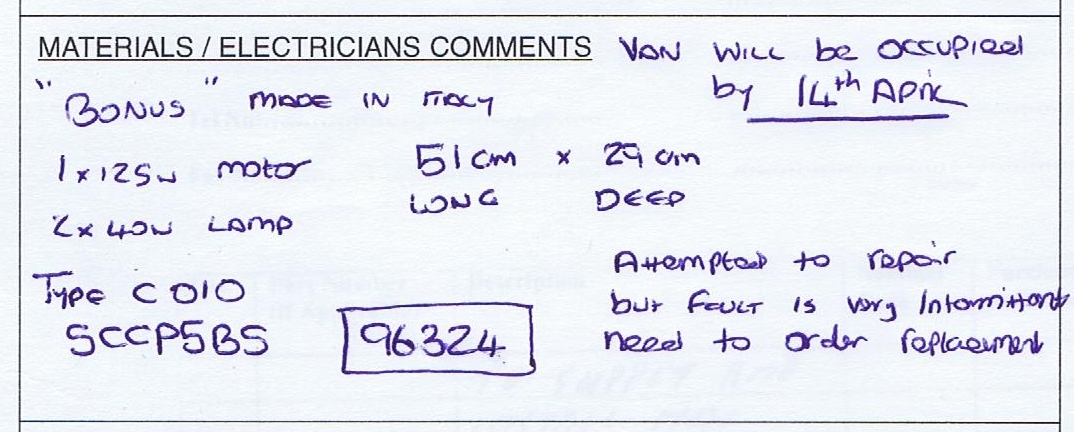 MATERIALS / ELECTRICIANS COMMENTS VAN WILL be OCCUPIED
by 14th APRIL
"BONUS" MADE IN ITALY
1 x 125w motor 51 cm x 29 cm
LONG DEEP
2 x 40w LAMP
Attempted to repair
but FAULT is very Intermittent
need to order replacement
Type C010
SCCP5BS 96324